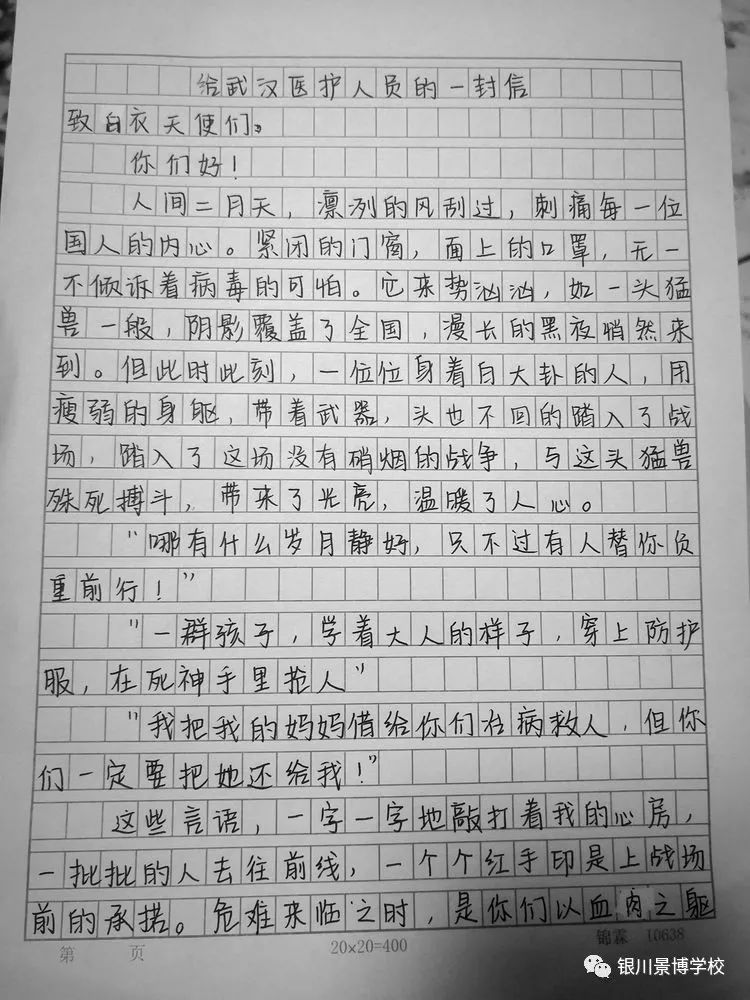 给武汉医护人员的一封信
致白衣天使们。
你们好！
人间二月天，凛冽的风刮过，刺痛每一位
国人的内心。紧闭的门窗，面上的口罩，无一
不倾诉着病毒的可怕。它来势汹汹，如一头猛
兽一般，阴影覆盖了全国，漫长的黑夜悄然来
到。但此时此刻，一位位身着白大卦的人，用
瘦弱的身躯，带着武器，头也不回的踏入了战
场，踏入了这场没有硝烟的战争，与这头猛兽
殊死搏斗，带来了光亮，温暖了人心。
“哪有什么岁月静好，只不过有人替你负
重前行！”
“一群孩子，学着大人的样子，穿上防护
服，在死神手里抢人”
“我把我的妈妈借给你们治病救人，但你
们一定要把她还给我！”
这些言语，一字一字地敲打着我的心房，
一批批的人去往前线，一个个红手印是上战场
前的承诺。危难来临之时，是你们以血肉之躯
第 页 20×20=400 锦霖 10638
银川景博学校